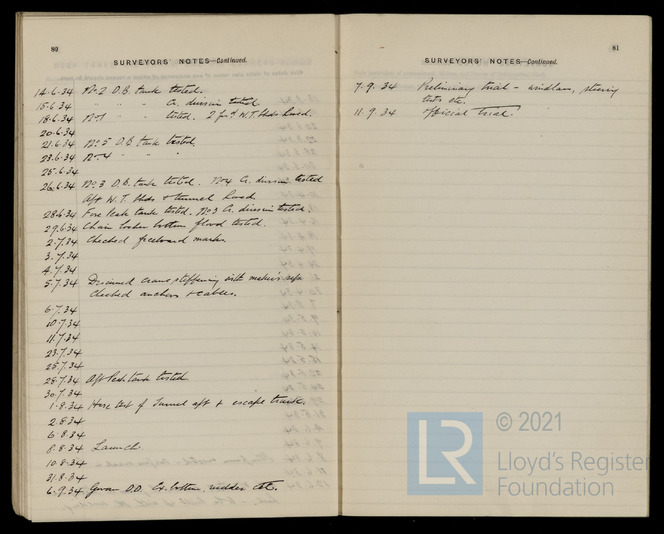 80
SURVEYORS' NOTES—Continued.
14.6.34 No 2 D.B. tank tested.
15.6.34 " " " Cr. division tested
18.6.34 No 1 " tested. 2 for'd W.T. Bhds hosed.
20.6.34
21.6.34 No 5 D.B. tank tested.
23.6.34 No 4 " "
25.6.34
26.6.34 No 3 D.B. tank tested. No 4 Cr. division tested
Aft W.T. Bhds & tunnel hosed
28.6.34 Fore Peak tank tested. No 3 Cr. division tested.
29.6.34 Chain locker bottom flood tested.
2.7.34 Checked freeboard marks.
3.7.34
4.7.34
5.7.34 Discussed crane stiffening with maker's rep.
Checked anchors & cables.
6.7.34
10.7.34
11.7.34
23.7.34
25.7.34
28.7.34 Aft Peak tank tested
30.7.34
1.8.34 Hose test of Tunnel aft & escape trunk.
2.8.34
6.8.34
8.8.34 Launch.
10.8.34
31.8.34
6.9.34 Govan D.D. Ex. bottom, rudder etc.
81
SURVEYORS' NOTES—Continued.
7.9.34 Preliminary trial - windlass, steering
tests etc.
11.9.34 Official Trial.
LR
© 2021
Lloyd's Register
Foundation